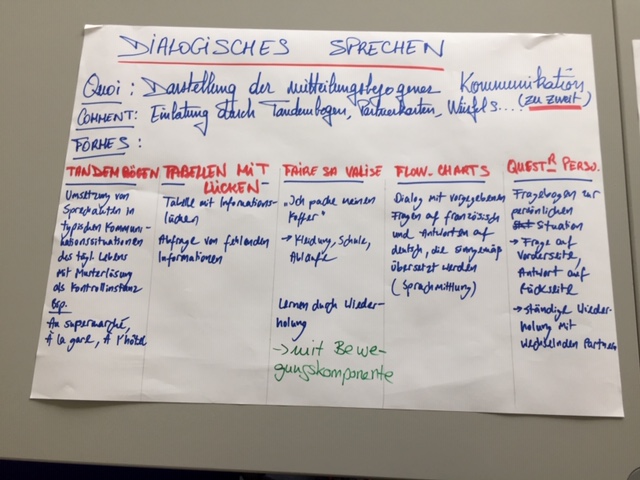 DIALOGISCHES SPRECHEN
Quoi : Darstellung der mitteilungsbezogenen Kommunikation
COMMENT: Einlatung durch Tandembogen, Partnerkarten, Würfel s.... (zu zweit)
FORMES :
TANDEMBÖGEN
Umsetzung von
Sprechakten in
typischen Kommuni-
kationssituationen
des tägl. Lebens
mit Musterlösung
als Kontrollinstanz
Bsp.
Au supermarché,
À la gare, À l'hôtel
TABELLEN MIT
LÜCKEN
Tabelle mit Informations-
lücken
Abfrage von fehlenden
Informationen
FAIRE SA VALISE
„Ich packe meinen
Koffer"
→ Kleidung, Schule,
Abläufe
Lernen durch Wieder-
holung
→ mit Bewe-
gungskomponente
FLOW-CHARTS
Dialog mit vorgegebenen
Fragen auf französisch
und Antworten auf
deutsch, die sinngemäß
übersetzt werden
(Sprachmittlung)
QUESTR PERSO.
Fragebogen zur
persönlichen
Situation
→ Frage auf
Vorderseite,
Antwort auf
Rückseite
→ ständige Wieder-
holung mit
wechselnden Partnern